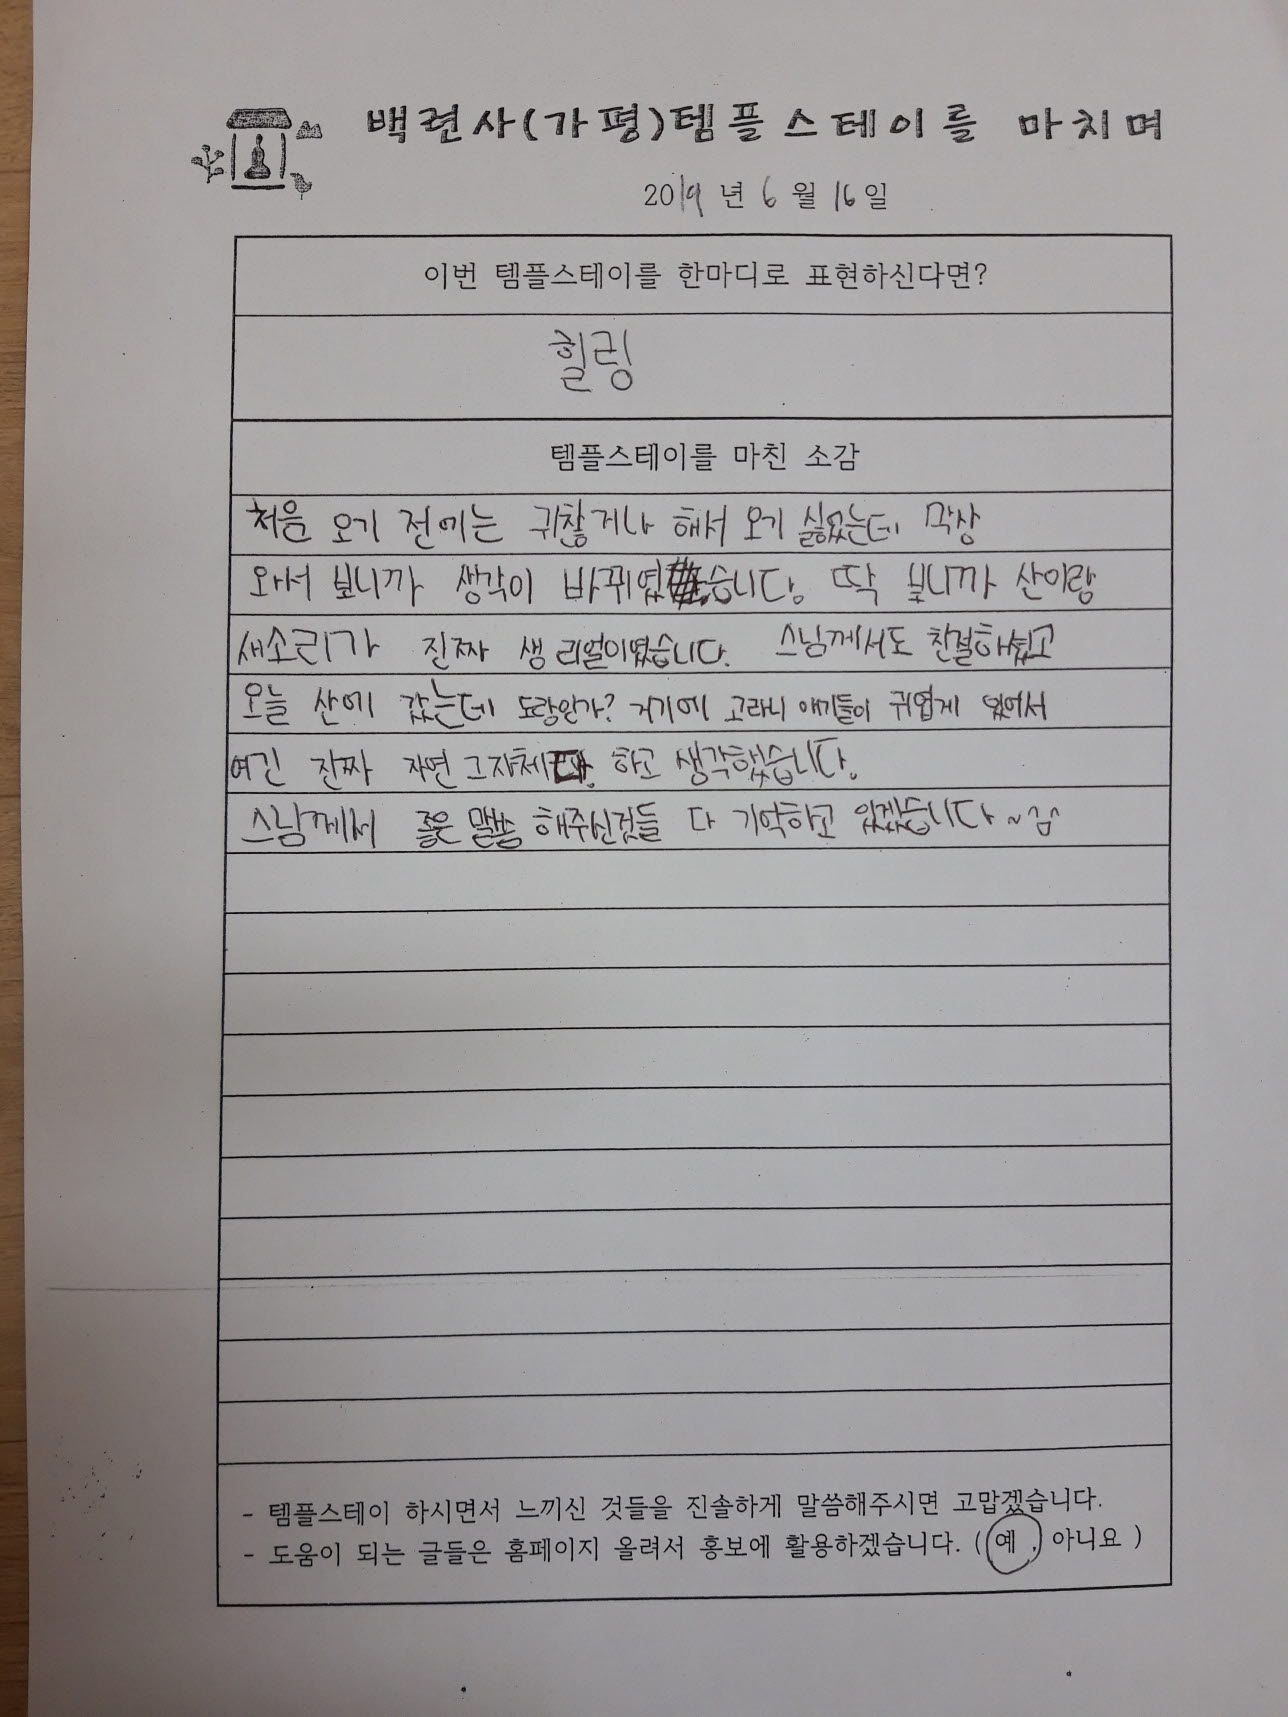 백련사(가평)템플스테이를 마치며
2019년 6월 16일
이번 템플스테이를 한마디로 표현하신다면?
힐링
템플스테이를 마친 소감
처음 오기 전에는 귀찮거나 해서 오기 싫었는데 막상
와서 보니까 생각이 바뀌였습니다. 딱 보니까 산이랑
새소리가 진짜 생 리얼이였습니다. 스님께서도 친절하셨고
오늘 산에 갔는데 도랑인가? 거기에 고라니 애기들이 귀엽게 있어서
여긴 진짜 자연 그자체다. 하고 생각했습니다.
스님께서 좋은 말씀 해주신것들 다 기억하고 있겠습니다~
- 템플스테이 하시면서 느끼신 것들을 진솔하게 말씀해주시면 고맙겠습니다.
- 도움이 되는 글들은 홈페이지 올려서 홍보에 활용하겠습니다. ( 예 , 아니요 )